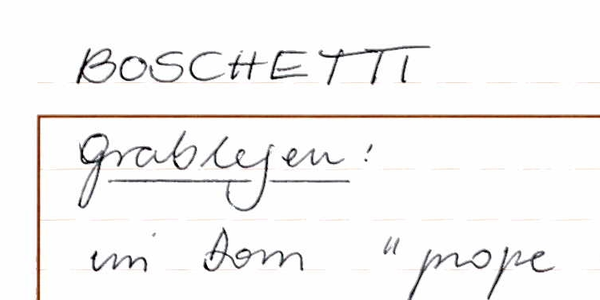 BOSCHETTI
Grablegen:
im Dom "prope